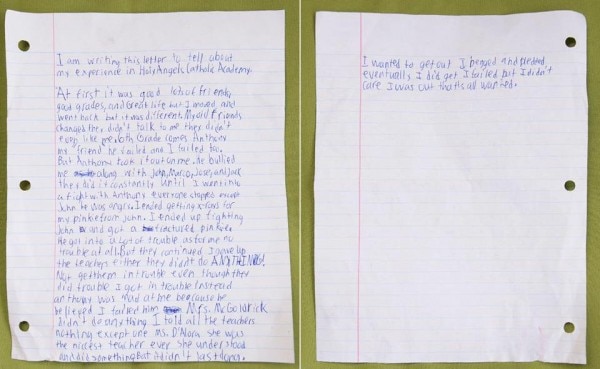 I am writing this letter to tell about
my experience in Holy Angels Catholic Academy.
At first it was good lots of friends,
good grades, and Great life but I moved, and
went back but it was different. My old friends
changed they didn't talk to me they didn't
even like me. 6th Grade comes Anthony
my friend he failed and I failed too.
But Anthony took it out on me. He bullied
me along with John, Marco, Jose, and Jack
they did it constantly until I went into
a fight with Anthony everyone stopped except
John he was angry. I ended getting x-rays for
my pinkie from John. I ended up fighting
John and got a fractured pinkie
He got into a lot of trouble as for me no
trouble at all. But they continued I gave up
the teachers either they didn't do ANYTHING!
Not get them in trouble even though they
did trouble I got in trouble instead
anthony was mad at me because he
believed I failed him Mrs. McGoldrick
didn't do anything I told all the teachers
nothing except one Ms. D'Alora she was
the nicest teacher ever she understood
and did something but it didn't last long.
I wanted to get out I begged and pleded
eventually I did get I failed but I didn't
care I was out that's all wanted.